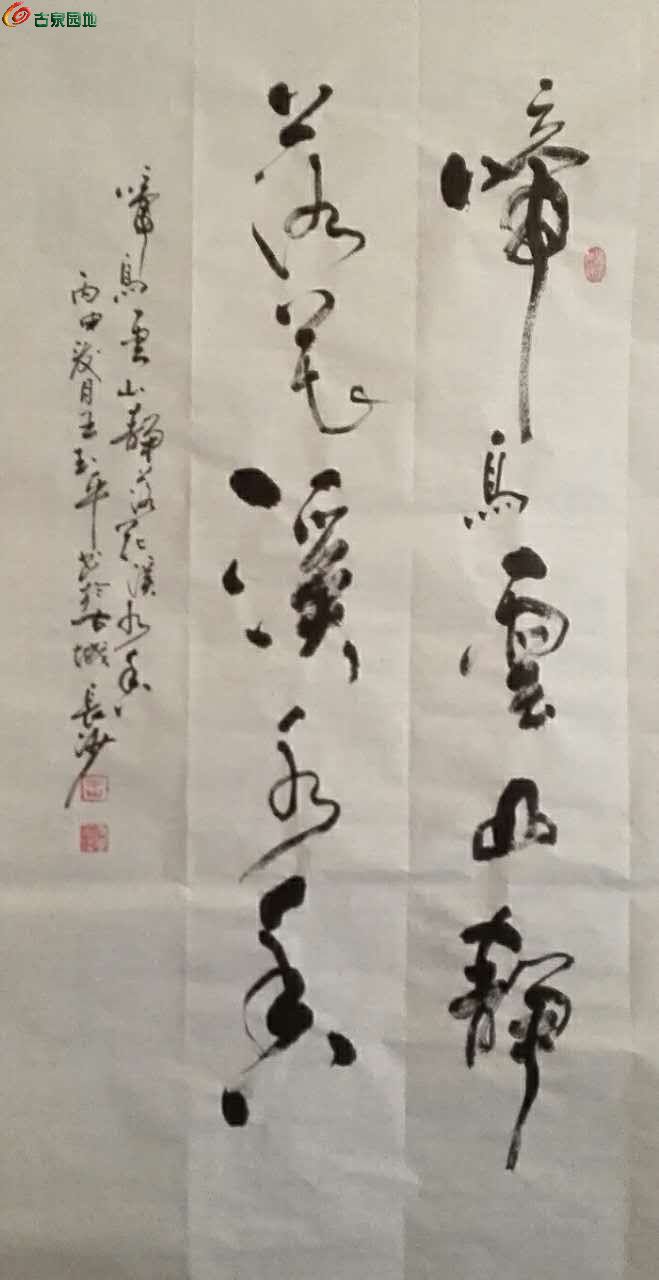 啼鳥雲山靜
落花溪水香
啼鳥雲山靜落花溪水香
丙申岁月王玉平书於古城長沙
古泉园地